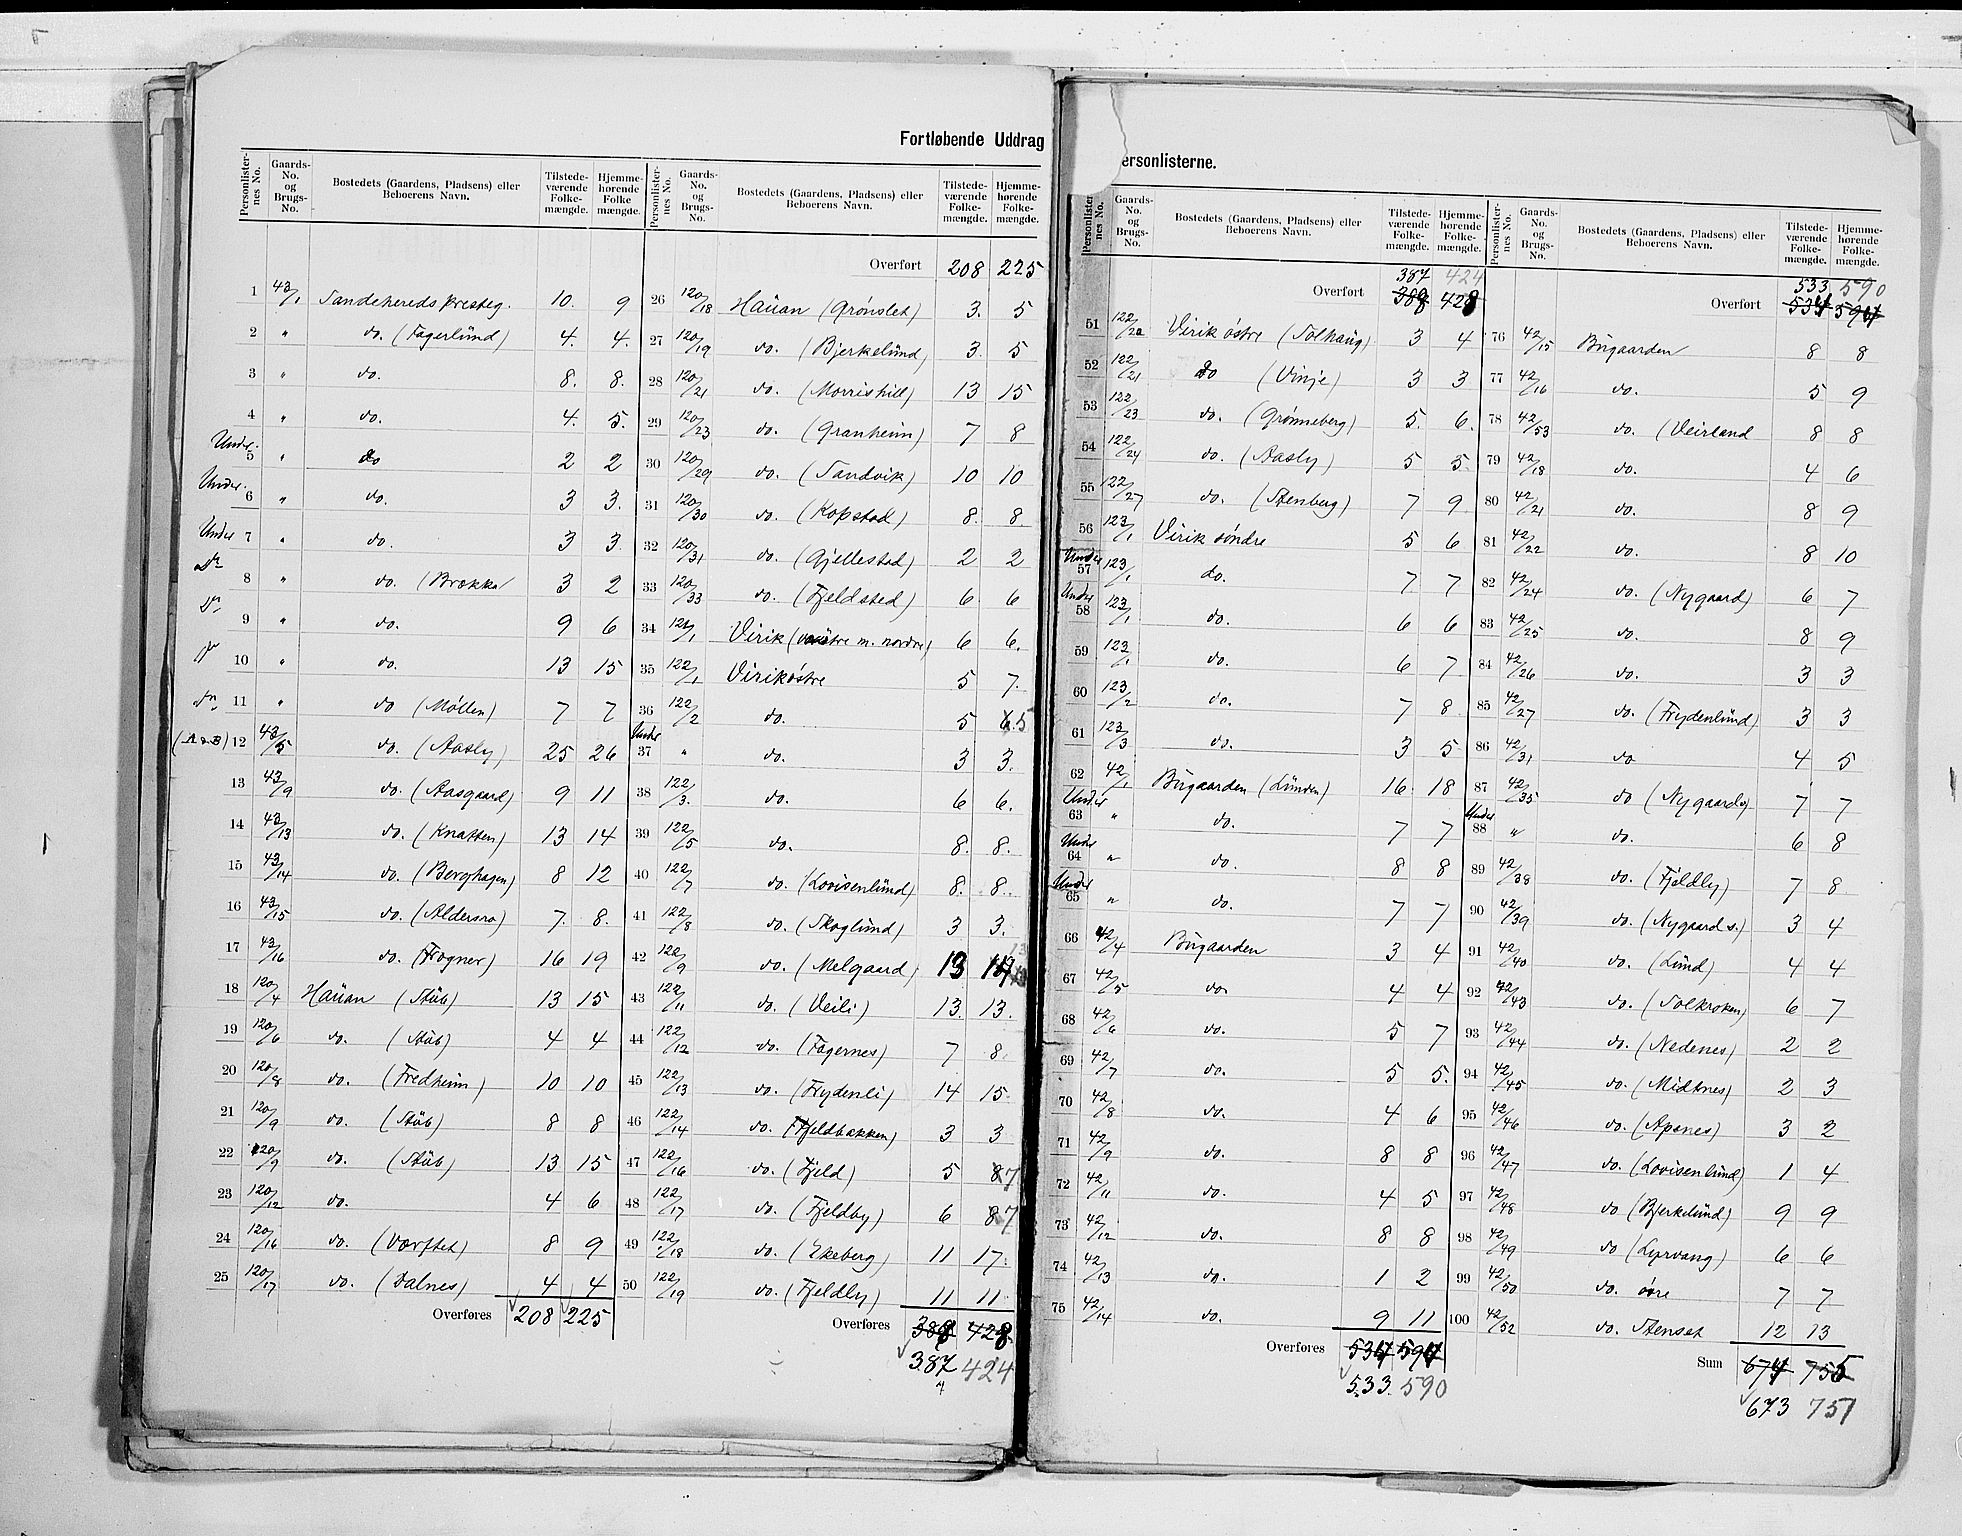 Fortløbende Uddrag
ersonlisterne.
Personlister-nes No. | Gaards-No. og Brugs-No. | Bostedets (Gaardens, Pladsens) eller Beboerens Navn. | Tilstede-værende Folke-mængde. | Hjemme-hørende Folke mængde.
1 43/1 Sandehereds presteg. 10. 9
2 " do. (Fagerlund) 4. 4.
3 " do. 8. 8.
4 " do. 4. 5.
Under 5 " do 2 2
Under 6 " do. 3 3.
Under 7 " do. 3 3
Do 8 " do. (Brekka 3 2
Do 9 " do. 9 6
Do 10 " do. 13 15
Do 11 " do (Møllen) 7 7
(A & B) 12 43/5 do. (Aasly) 25 26
13 43/9 do. (Aasgaard) 9 11
14 43/13 do. (Knatten) 13 14
15 43/14 do. (Berghagen) 8 12
16 43/15 do. (Aldersro) 7. 8.
17 43/16 do. (Frogner) 16 19
18 120/4 Haüan (Stüb) 13 15
19 120/6 do. (Stüb) 4 4
20 120/8 do. (Fredheim) 10 10
21 120/9 do. (Stüb) 8 8
22 120/9 do. (Stüb) 13 15
23 120/12 do. 4 6
24 120/16 do. (Værftet) 8 9
25 120/17 do. (Dalnes) 4 4
Overføres 208 225
Personlister-nes No. | Gaards-No. og Brugs-No. | Bostedets (Gaardens, Pladsens) eller Beboerens Navn. | Tilstede-værende Folke-mængde. | Hjemme-hørende Folke-mængde.
Overført 208 225
26 120/18 Haüan (Grønslet) 3. 5
27 120/19 do. (Bjerkelünd) 3. 5
28 120/21 do. (Morrishill) 13 15
29 120/23 do. (Granheim) 7 8
30 120/29 do. (Sandvik) 10 10
31 120/30 do. (Kopstad) 8. 8
32 120/31 do. (Gjellestad) 2 2
33 120/33 do. (Fjeldsted) 6 6
34 121/1 Virik (østre m. nordre) 6 6.
35 122/1 Virik østre 5 7.
36 122/2 do. 5 6 5
Under 37 " do. 3 3.
38 122/3. do. 6 6.
39 122/5 do. 8. 8.
40 122/7 do. (Lovisenlünd) 8. 8.
41 122/8 do. (Skoglünd) 3 3.
42 122/9 do. (Melgaard) 13
43 122/11 do. (Veili) 13. 13.
44 122/12 do. (Fagernes) 7 8.
45 122/13 do. (Frydenli) 14 15.
46 122/14 do. (Fjeldbakken) 3 3
47 122/16 do. (Fjeld) 5 8 7
48 122/17 do. (Fjeldby) 6 8 7
49 122/18 do. (Ekeberg) 11 17.
50 122/19 do. (Fjeldly) 11 11.
Overføres 388 428
387 424
Personlister-nes No. | Gaards-No. og Brugs-No. | Bostedets (Gaardens, Pladsens) eller Beboerens Navn. | Tilstede-værende Folke-mængde. | Hjemme-hørende Folke-mængde.
387 424
Overført 388 428
51 122/20 Virik østre (Solhaug) 3 4
52 122/21 do (Vinje) 3 3
53 122/23 do. (Grønneberg) 5. 6.
54 122/24 do. (Aasly) 5 5.
55 122/27 do. (Stenberg) 7 9
56 123/1 Virik søndre 5 6
Under 57 123/1 do. 7 7
Under 58 123/1 do. 6 6
59 123/1 do. 6 7
60 123/2 do. 7 8
61 123/3 do. 3 5
62 42/1 Bugaarden (Lünden) 16 18
Under 63 " do. 7 7
Under 64 " do. 8 8
Under 65 " do. 7 7
66 42/4 Bugaarden 3 4
67 42/5 do. 4 4
68 42/6 do. 5 7
69 42/7 do. 5 5.
70 42/8 do. 4 6
71 42/9 do. 8 8
72 42/11 do. 4 5
73 42/12 do. 8 8
74 42/13 do. 1 2
75 42/14 do. 9 11
Overføres 534 594
533. 590
Personlister-nes No. | Gaards-No. og Brugs-No. | Bostedets (Gaardens, Pladsens) eller Beboerens Navn. | Tilstede-værende Folke-mængde. | Hjemme-hørende Folke-mængde.
533 590
Overført 534 594
76 42/15 Bugaarden 8 8
77 42/16 do. 5 9
78 42/53 do. (Veirland 8 8
79 42/18 do. 4 6
80 42/21 do. 8 9
81 42/22 do. 8 10
82 42/24 do. (Nygaard) 6 7
83 42/25 do. 8 9
84 42/26 do. 3 3
85 42/27 do. (Frydenlünd) 3 3
86 42/31 do 4 5
87 42/35 do (Nygaards) 7 7
Under 88 " do. 6 8
89 42/38 do. (Fjeldly) 7 8
90 42/39 do. (Nygaard s.) 3 4
91 42/40 do. (Lünd) 4 4
92 42/43 do. (Solkroken) 6 7
93 42/44 do. (Nedenes) 2 2
94 42/45 do. (Midtnes) 2 3
95 42/46 do. (Apenes) 3 2
96 42/47 do. (Lovisenlünd) 1 4
97 42/48 do (Bjerkelünd) 9 9
98 42/49 do (Lyrvang) 6 6
99 42/50 do. øvre 7 7
100 42/52 do. Stenset 12 13
Sum 674 755
673 751